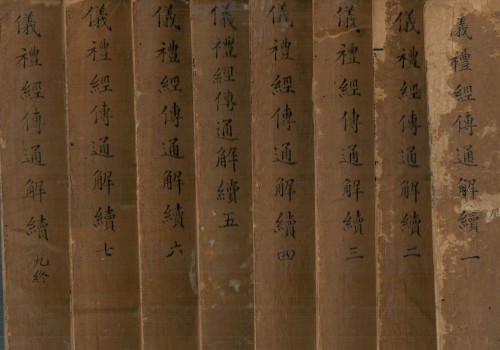 儀禮經傳通解續一
儀禮經傳通解續二
儀禮經傳通解續三
儀禮經傳通解續四
儀禮經傳通解續五
儀禮經傳通解續六
儀禮經傳通解續七
儀禮經傳通解續九終